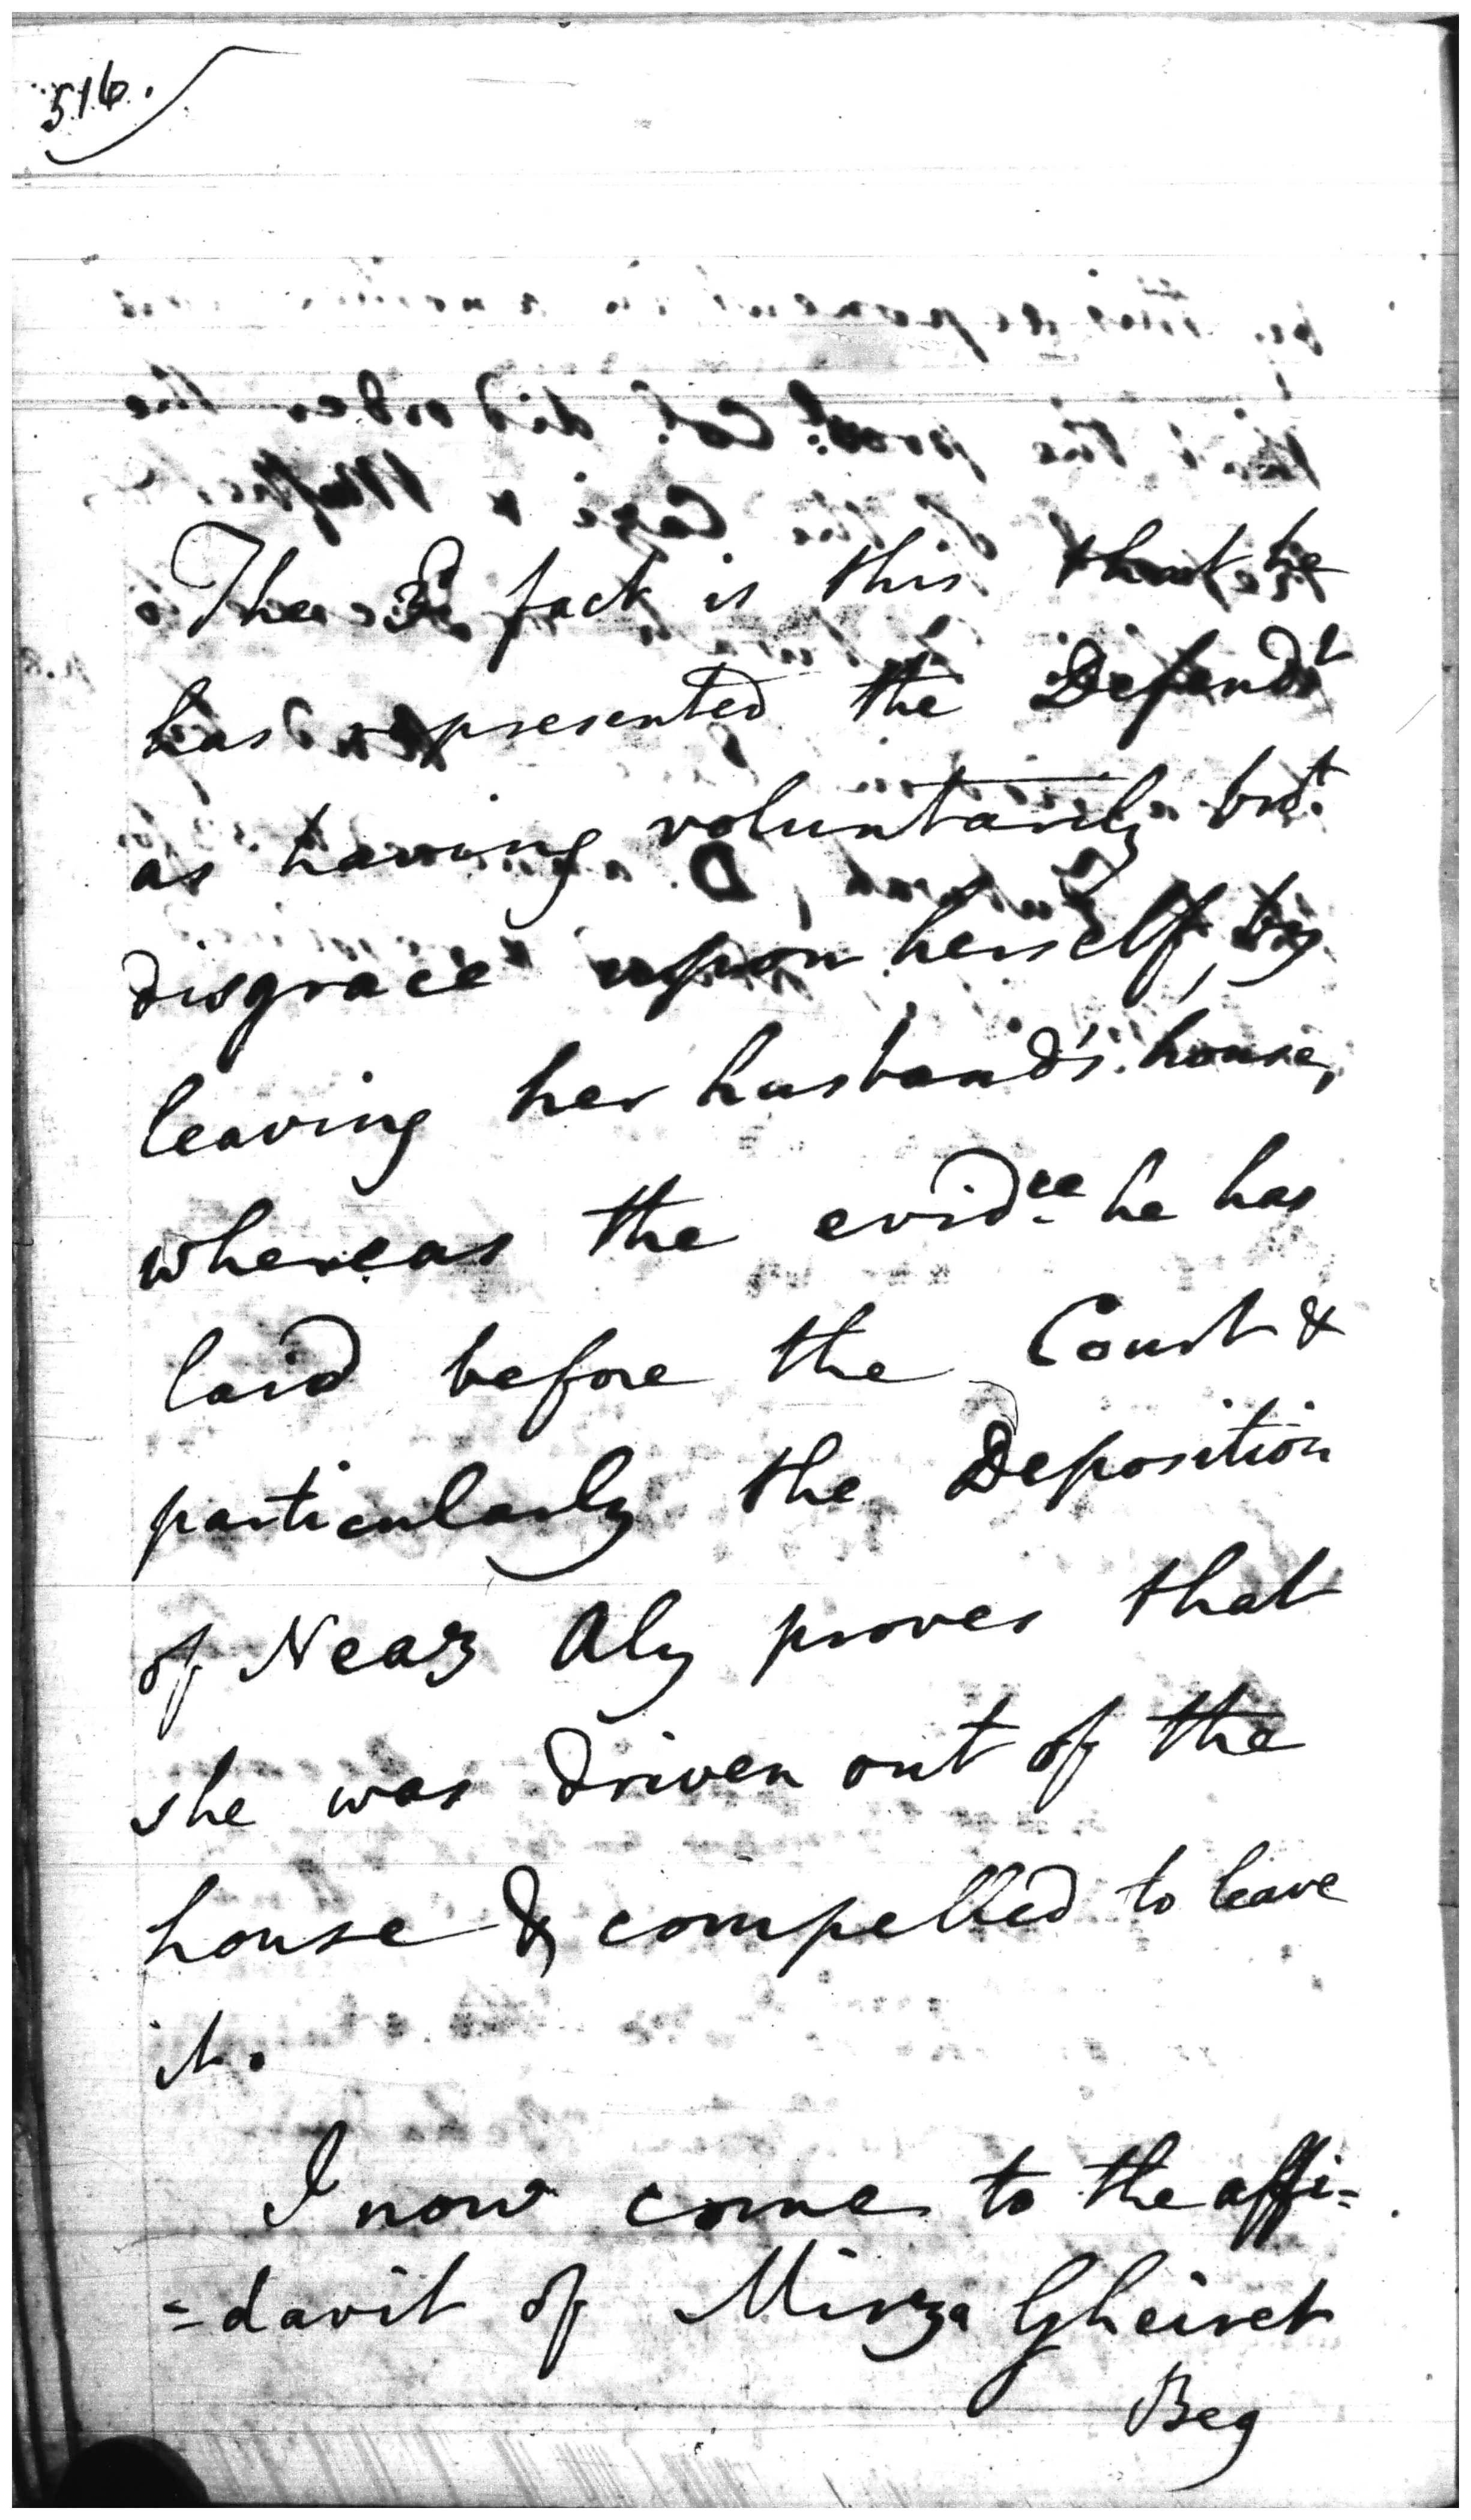 516.
The 3d fact is this that he
has represented the Defendt
as having voluntarily brot
disgrace upon herself, by
leaving her husband's house,
whereas the evidce he has
laid before the Court &
particularly the Deposition
of Neaz Aly proves that
she was driven out of the
house & compelled to leave
it.
I now come to the affi=
=davit of Mirza Gheiret
Beg